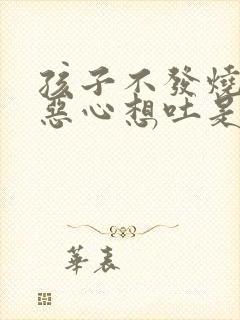 孩子不發燒
惡心想吐是
華表